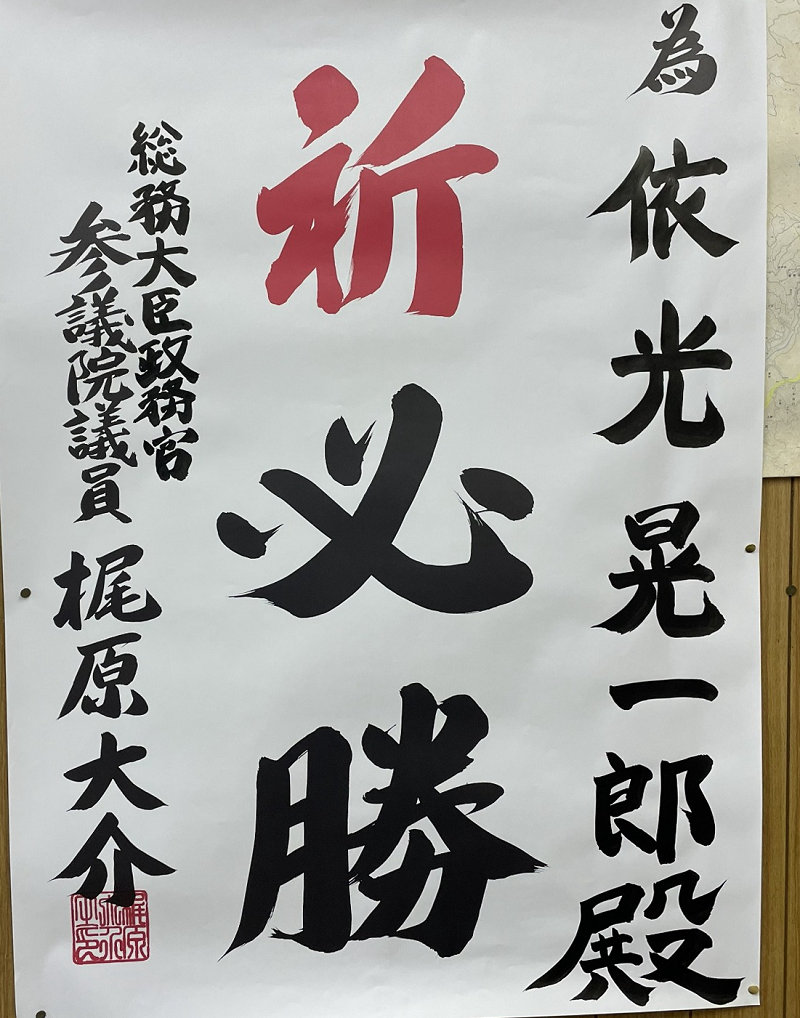 為依光晃一郎殿
祈必勝
総務大臣政務官
参議院議員梶原大介